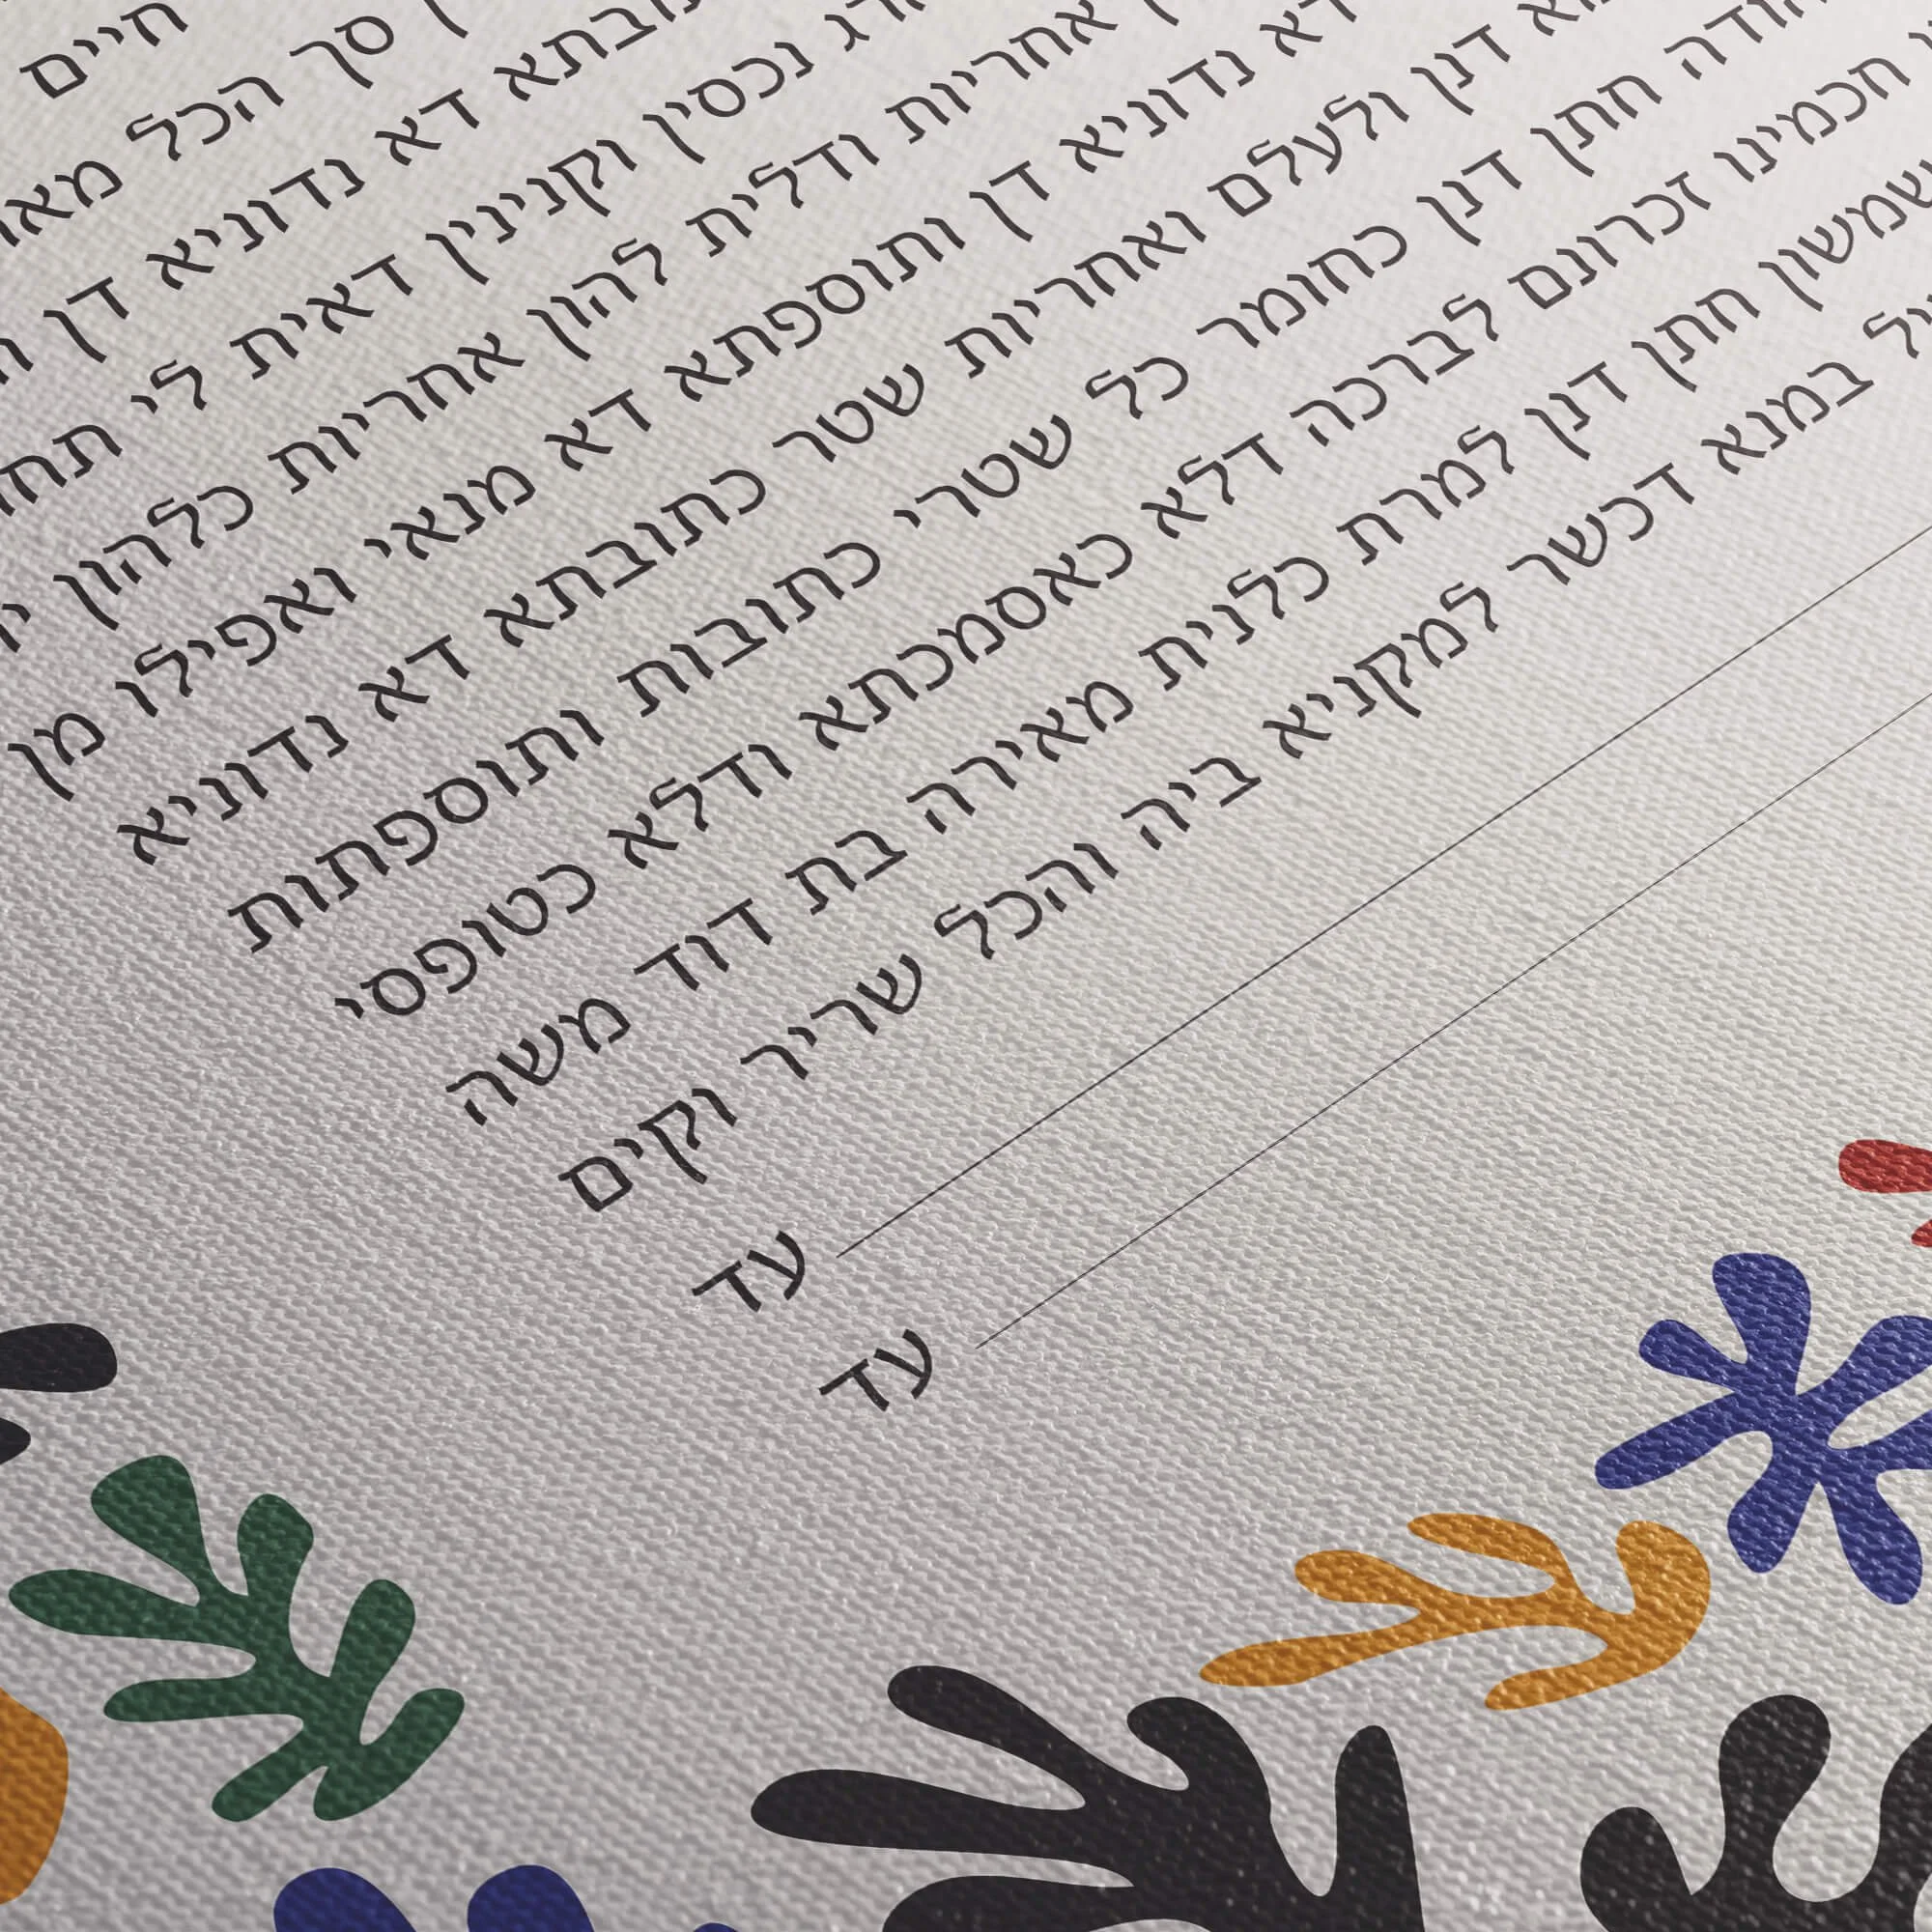 חיים
סך הכל
דא נדוניא דן
נכסין וקנינין דאית לי
אחריות ודלית להון אחריות כלהון
דא נדוניא דן ותוספתא דא מנאי ואפילו מן
דנן ולעלם ואחריות שטר כתובתא דא נדוניא
חתן דנן כחומר כל שטרי כתובות ותוספתות
חכמינו זכרונם לברכה דלא כאסמכתא ודלא כטופסי
שמשון חתן דנן למרת כלנית מאירה בת דוד משה
במנא דכשר למקניא ביה והכל שריר וקים
עד
עד